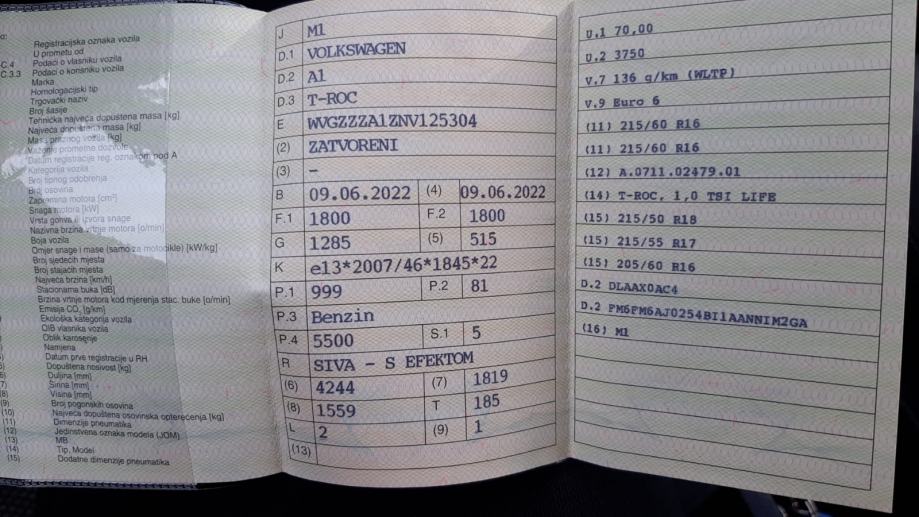 a:
Registracijska oznaka vozila
U prometu od
C.4 Podaci o vlasniku vozila
C.3.3 Podaci o korisniku vozila
Marka
Homologacijski tip
Trgovački naziv
Broj šasije
Tehnička najveća dopuštena masa [kg]
Najveća dopuštena masa [kg]
Masa praznog vozila [kg]
Važenje prometne dozvole
Datum registracije reg. oznakom pod A
Kategorija vozila
Broj tipnog odobrenja
Broj osovina
Zapremina motora [cm³]
Snaga motora [kW]
Vrsta goriva ili izvora snage
Nazivna brzina vrtnje motora [o/min]
Boja vozila
Omjer snage i mase (samo za motocikle) [kW/kg]
Broj sjedećih mjesta
Broj stajaćih mjesta
Najveća brzina [km/h]
Stacionarna buka [dB]
Brzina vrtnje motora kod mjerenja stac. buke [o/min]
Emisija CO₂ [g/km]
Ekološka kategorija vozila
OIB vlasnika vozila
Oblik karoserije
Namjena
Datum prve registracije u RH
Dopuštena nosivost [kg]
Duljina [mm]
Širina [mm]
Visina [mm]
(9) Broj pogonskih osovina
(10) Najveća dopuštena osovinska opterećenja [kg]
(11) Dimenzije pneumatika
(12) Jedinstvena oznaka modela (JOM)
(13) MB
(14) Tip, Model
(15) Dodatne dimenzije pneumatika
J M1
D.1 VOLKSWAGEN
D.2 A1
D.3 T-ROC
E WVGZZZA1ZNV125304
(2) ZATVORENI
(3) –
B 09.06.2022 (4) 09.06.2022
F.1 1800 F.2 1800
G 1285 (5) 515
K e13*2007/46*1845*22
P.1 999 P.2 81
P.3 Benzin
P.4 5500 S.1 5
R SIVA - S EFEKTOM
(6) 4244 (7) 1819
(8) 1559 T 185
L 2 (9) 1
(13)
U.1 70,00
U.2 3750
V.7 136 g/km (WLTP)
V.9 Euro 6
(11) 215/60 R16
(11) 215/60 R16
(12) A.0711.02479.01
(14) T-ROC, 1,0 TSI LIFE
(15) 215/50 R18
(15) 215/55 R17
(15) 205/60 R16
D.2 DLAAX0AC4
D.2 FM6FM6AJ0254BI1AANNIM2GA
(16) M1